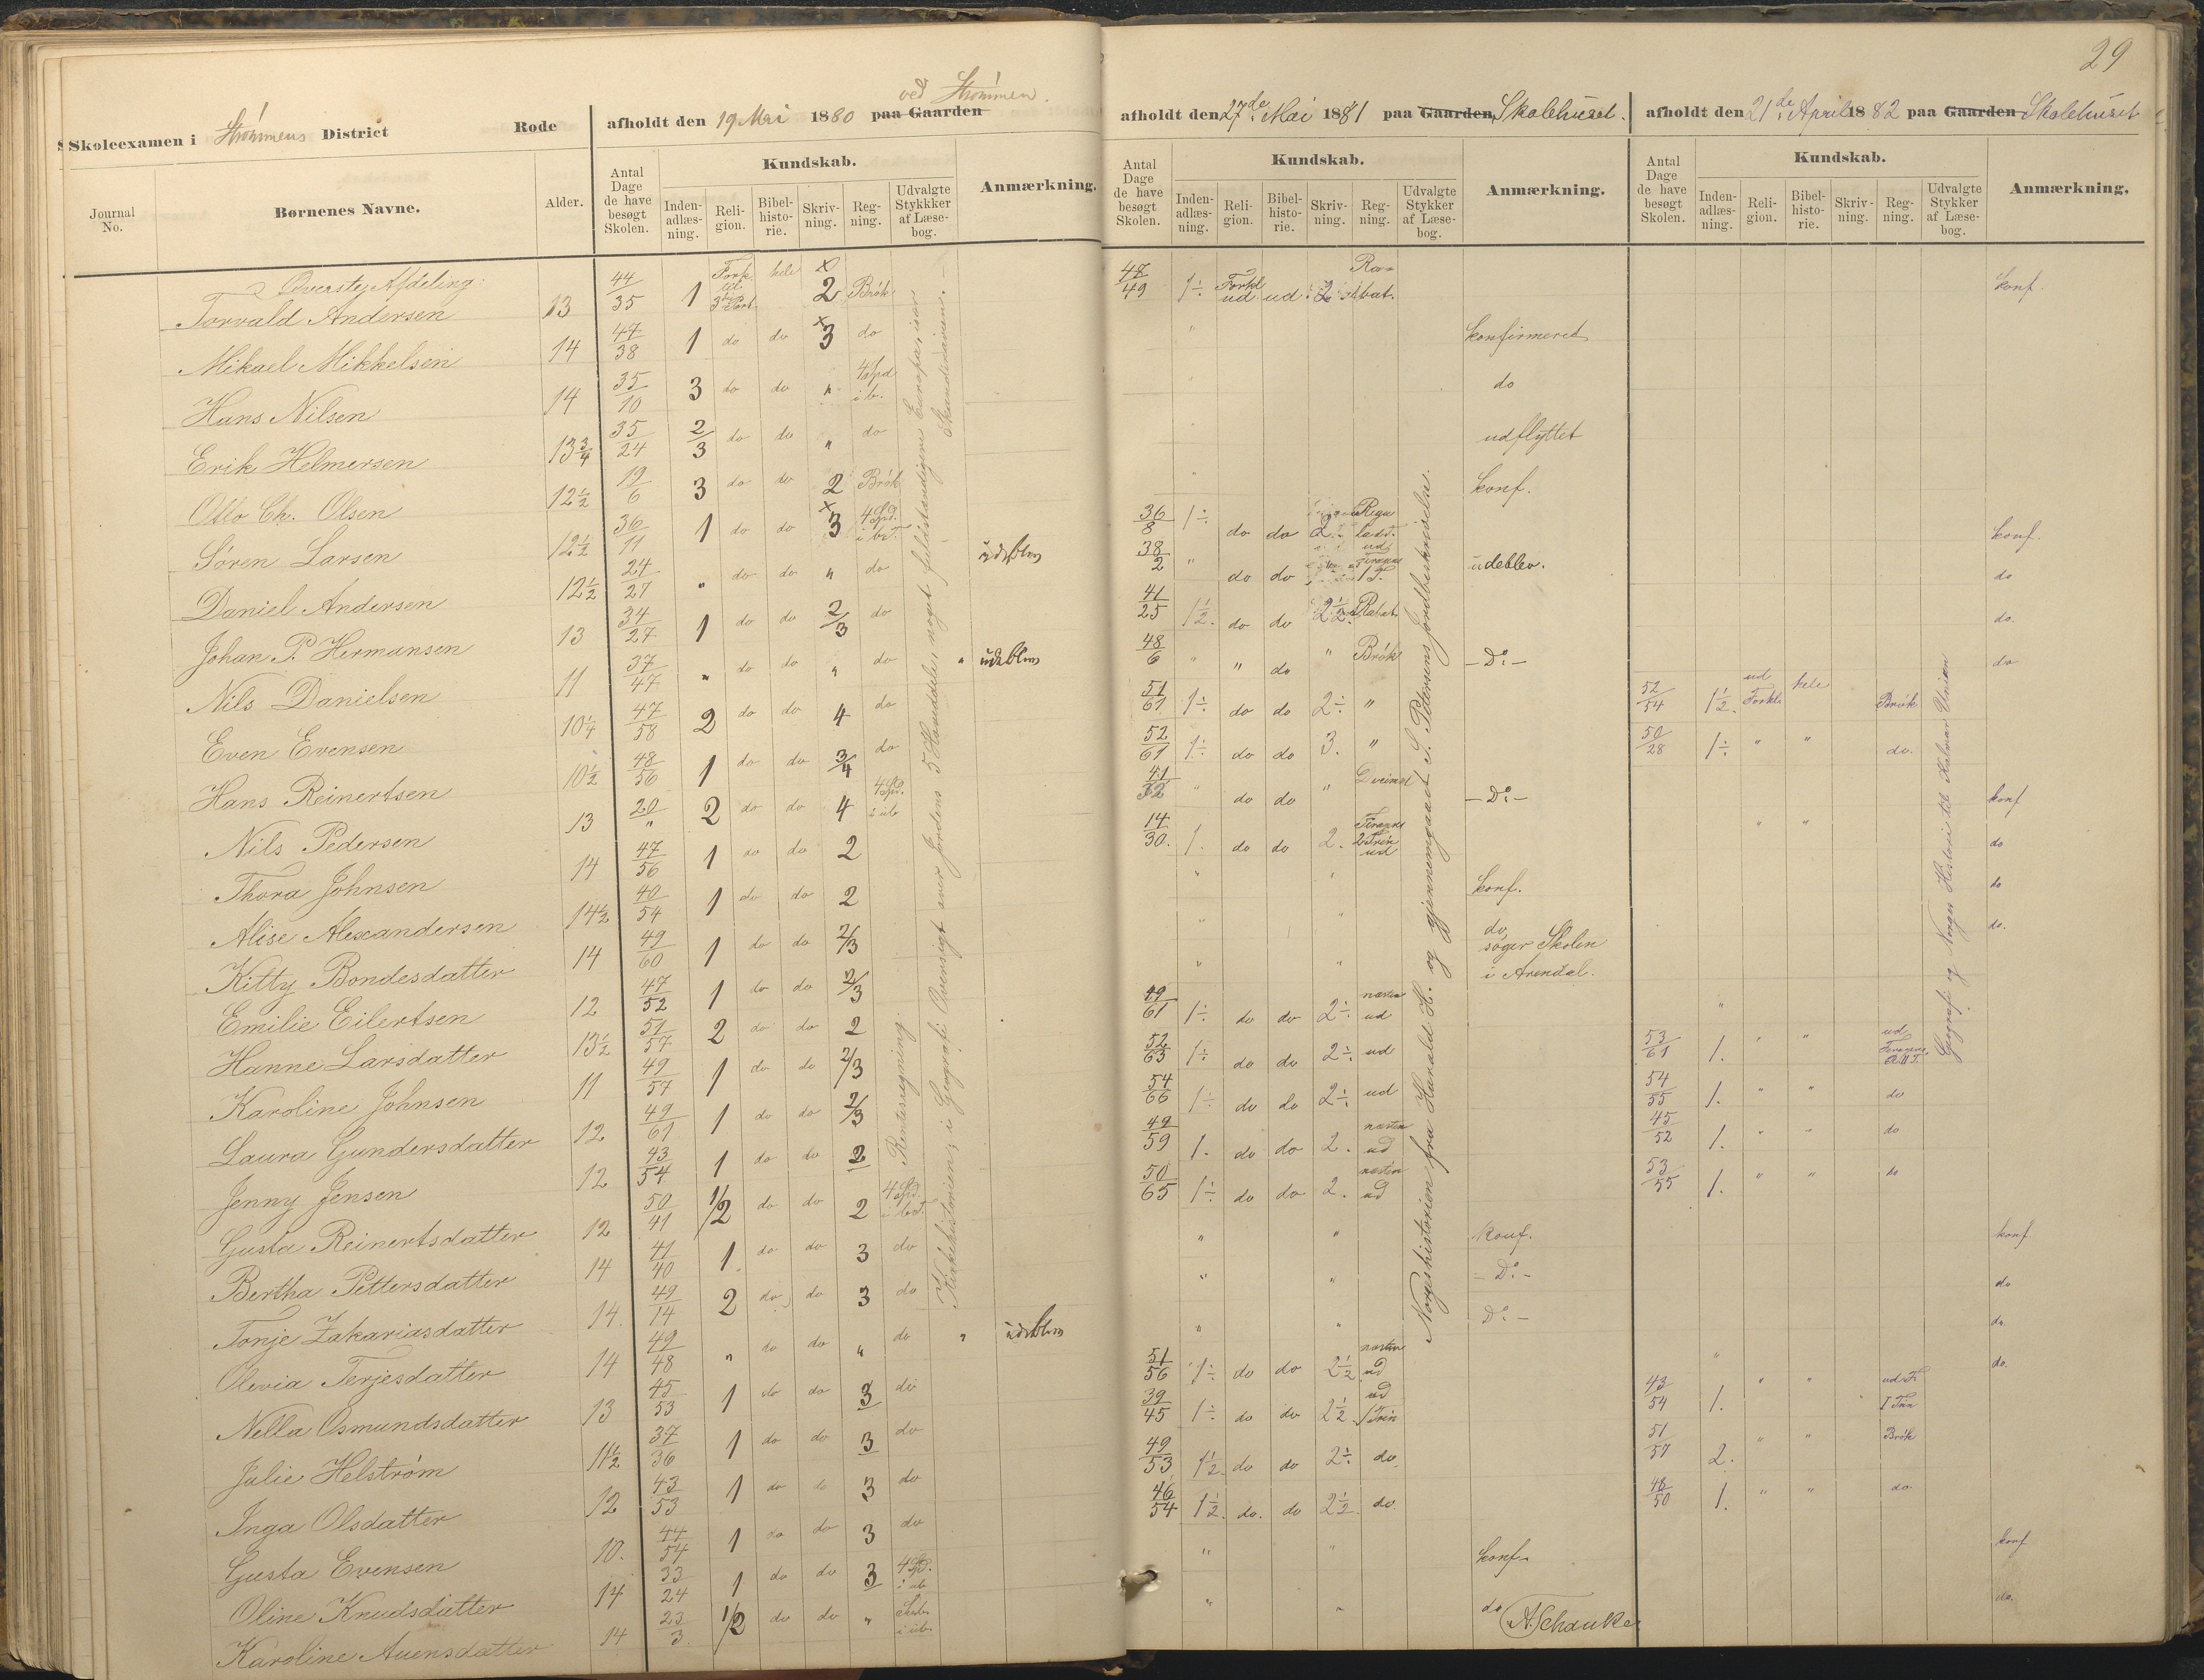 29
Skoleexamen i Strømmens District Rode
afholdt den 19 Mai 1880 paa Gaarden ved Strømmen.
Journal No. Børnenes Navne. Alder. Antal Dage de have besøgt Skolen. Kundskab. Anmærkning.
Indenadlæsning. Religion. Bibelhistorie. Skrivning. Regning. Udvalgte Stykker af Læsebog.
Øverste Afdeling:
Torvald Andersen 13 44/35 1 Fork. til 3die Part. hele x 2 Brøk
Mikael Mikkelsen 14 47/38 1 do do x 3 do
Hans Nilsen 14 35/10 3 do do " 4 Spd i b.
Erik Helmersen 13 3/4 35/24 2/3 do do " do
Otto Ch. Olsen 12 1/2 19/6 3 do do 2 Brøk
Søren Larsen 12 1/2 36/11 1 do do x 3 4 Spd.
Daniel Andersen 12 1/2 24/27 " do do " do udeblev
Johan P. Hermansen 13 34/27 1 do do 2/3 do
Nils Danielsen 11 37/47 " do do " do " udeblev
Even Evensen 10 1/4 47/58 2 do do 4 do
Hans Reinertsen 10 1/2 48/56 1 do do 3/4 do
Nils Pedersen 13 20/" 2 do do 4 4 Spd. i ub
Thora Johnsen 14 47/56 1 do do 2
Alise Alexandersen 14 1/2 40/54 1 do do 2
Kitty Bondesdatter 14 49/60 1 do do 2/3
Emilie Eilertsen 12 47/52 1 do do 2/3
Hanne Larsdatter 13 1/2 51/57 2 do do 2
Karoline Johnsen 11 49/57 1 do do 2/3
Laura Gundersdatter 12 49/61 1 do do 2/3
Jenny Jensen 12 43/54 1 do do 2
Gusta Reinertsdatter 12 50/41 1/2 do do 2 4 Spd.
Bertha Pettersdatter 14 41/40 1 do do 3 do
Tonje Zakariasdatter 14. 49/14 2 do do 3 do
Olevia Terjesdatter 14 49/48 " do do " do " udeblev
Nella Osmundsdatter 13 45/53 1 do do 3 do
Julie Helstrøm 11 1/2 37/36 1 do do 3 do
Inga Olsdatter 12 43/53 1 do do 3 do
Gusta Evensen 10. 44/54 1 do do 3 do
Oline Knudsdatter 14 33/24 1 do do 3 4 Spd. i ub
Karoline Auensdatter 14 23/3. 1/2 do do " i ub.
Rentesregning.
Kirkehistorien; i Geografi Oversigt over Jordens 5 Hoveddele, noget fuldstændigere Europa, især Skandinavien.
afholdt den 27de Mai 1881 paa Gaarden Skolehuset.
Antal Dage de have besøgt Skolen. Kundskab. Anmærkning.
Indenadlæsning. Religion. Bibelhistorie. Skrivning. Regning. Udvalgte Stykker af Læsebog.
48/49 1÷ Forkl ud ud 2 Rabat.
" konfirmered
do
udflyttet
" konf.
36/8 1÷ do do 2.
38/2 " do do udeblev.
41/25 1 1/2. do do 2 1/2. Rabat
48/6 " " do " Brøk – Do –
51/61 1÷ do do 2÷ "
52/61 1÷ do do 3. "
41/32 " do do " – Do –
14/30. 1. do do 2. 2 Trin ud
" " konf.
" " do
" " søger Skolen i Arendal.
49/61 1÷ do do 2÷ næsten ud
52/63 1÷ do do 2÷ ud
54/66 1÷ do do 2÷ ud
49/59 1. do do 2. næsten ud
50/65 1÷ do do 2. næsten ud
" " Konf.
" " – Do –
" " Do –
51/56 1÷ do do 2 1/2 næsten ud
39/45 1÷ do do 2 1/2 ud 1 Trin
49/53 1 1/2. do do 2÷ do
46/54 1 1/2. do. do 2 1/2. do.
" " konf.
" " do
A. Schanke
Norgeshistorien fra Harald H. og gjennemgaaet S. Petersens Jordbeskrivelse.
afholdt den 21de April 1882 paa Gaarden Skolehuset
Antal Dage de have besøgt Skolen. Kundskab. Anmærkning.
Indenadlæsning. Religion. Bibelhistorie. Skrivning. Regning. Udvalgte Stykker af Læsebog.
konf.
konf.
do
do.
do
52/54 1 1/2. ud Forkl. hele Brøk
50/28 1÷ " " do.
konf
" " do
do
do.
"
53/61 1. " " ud
54/55 1. " " do
45/52 1. " " do
53/55 1. " " do
konf
do
do.
" do.
43/54 1. " " 1 Trin
51/57 2. " " Brøk
48/50 1. " " do.
konf
do.
Geografi og Norges Historie til Kalmar Union